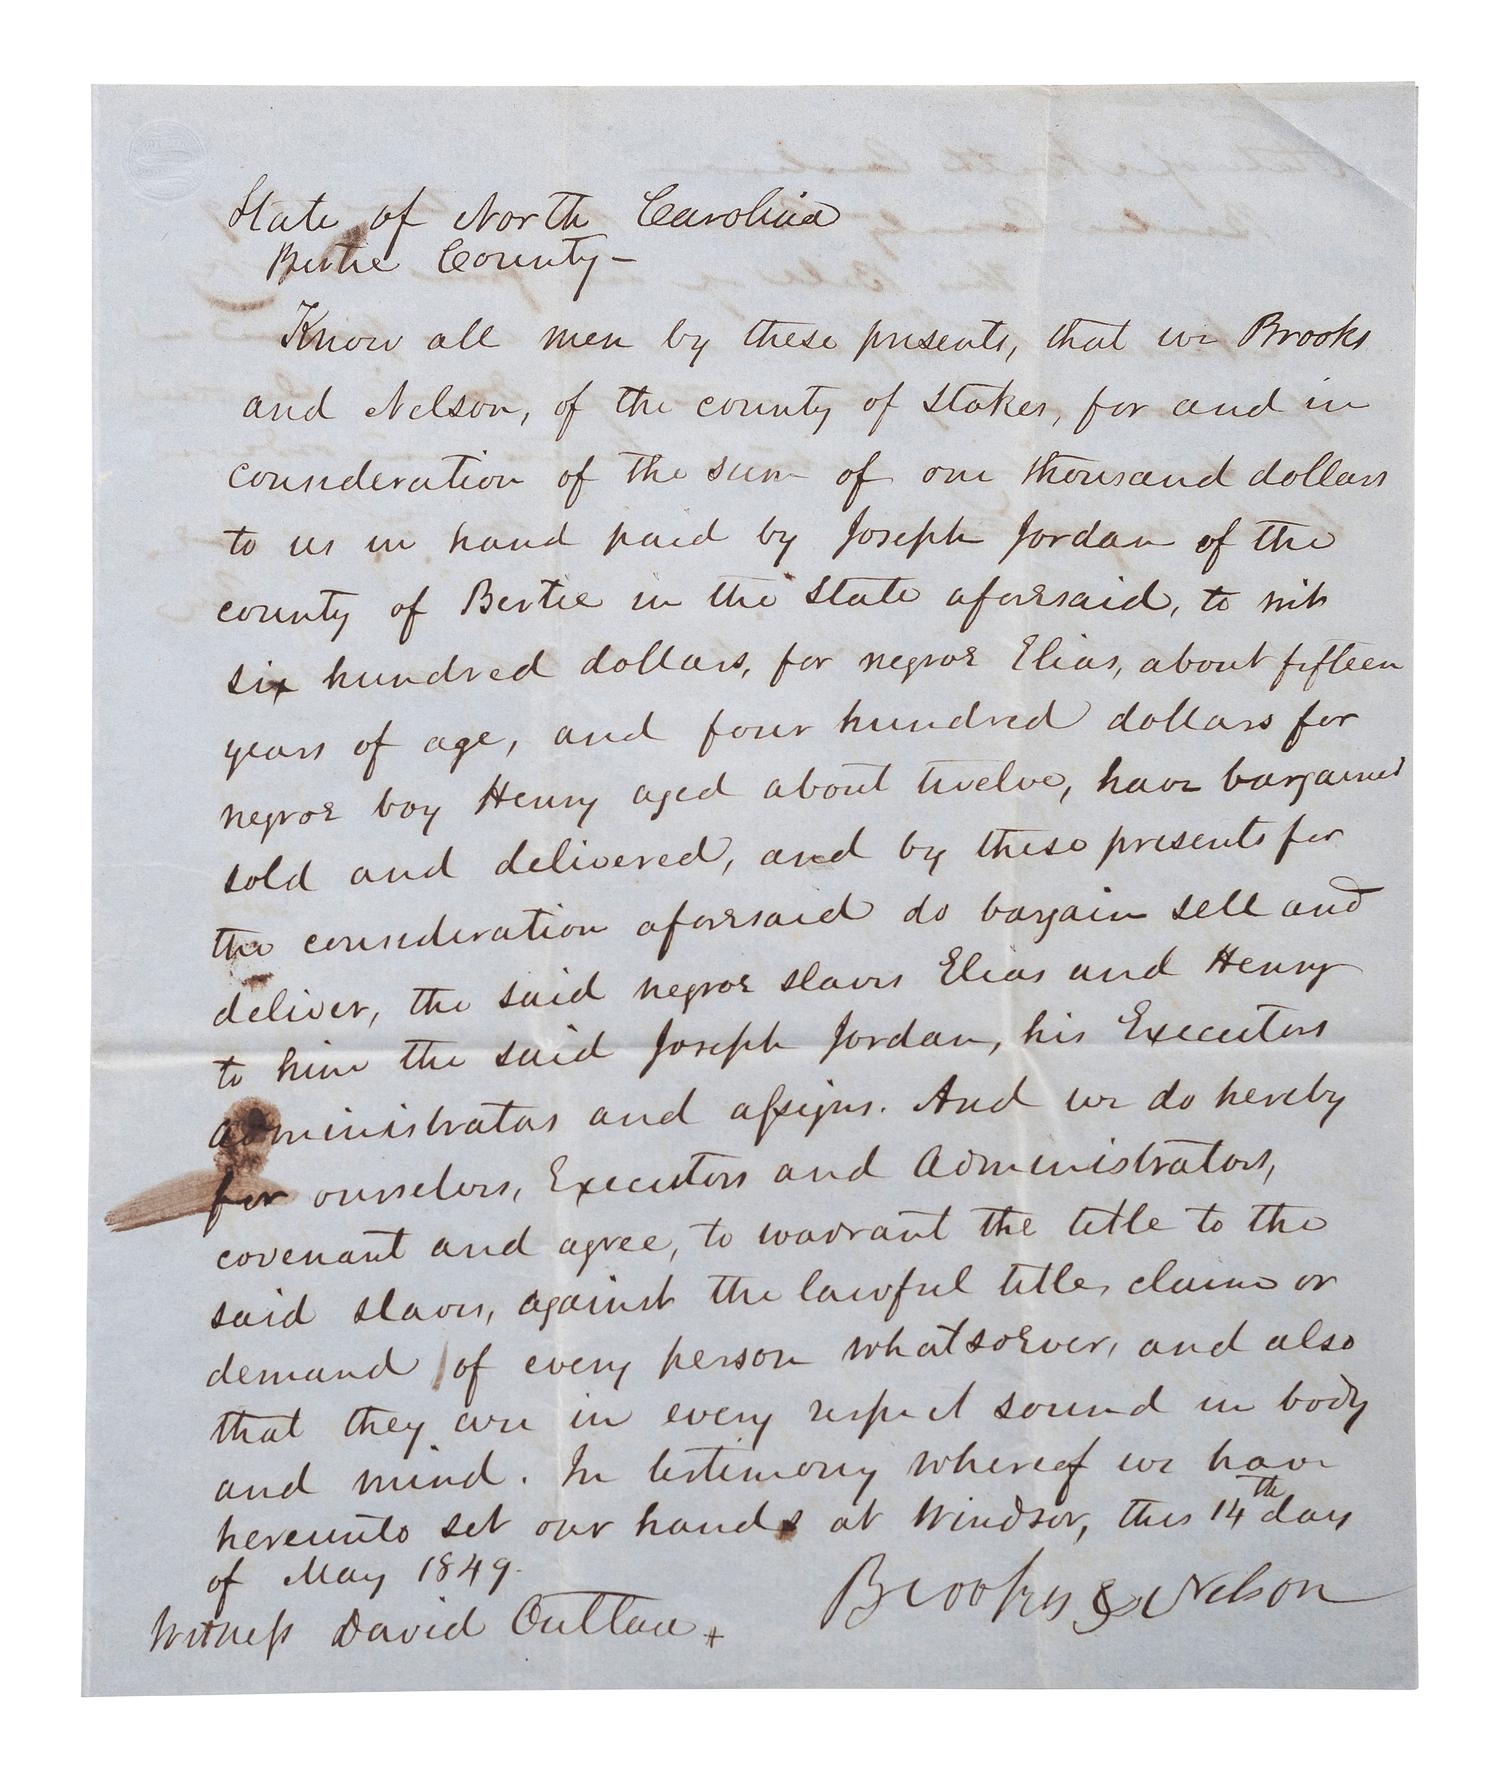 State of North Carolina
Bertie County –
Know all men by these presents, that we Brooks
and Nelson, of the county of Stokes, for and in
consideration of the sum of one thousand dollars
to us in hand paid by Joseph Jordan of the
county of Bertie in the State aforesaid, to wit
six hundred dollars, for negroe Elias, about fifteen
years of age, and four hundred dollars for
negroe boy Henry aged about twelve, have bargained
sold and delivered, and by these presents for
the consideration aforesaid do bargain sell and
deliver, the said negroe slaves Elias and Henry
to him the said Joseph Jordan, his Executors
administrators and assigns. And we do hereby
for ourselves, Executors and Administrators,
covenant and agree, to warrant the title to the
said slaves, against the lawful title, claim or
demand of every person whatsoever, and also
that they are in every respect sound in body
and mind. In testimony whereof we have
hereunto set our hands at Windsor, this 14th day
of May 1849.
Brookes & Nelson
Witness David Outlaw +